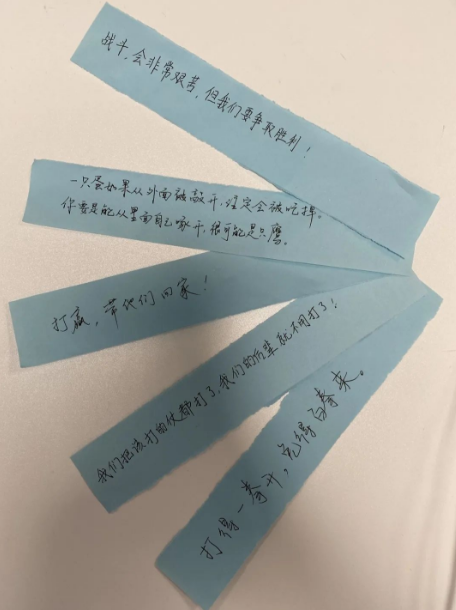 战斗,会非常艰苦,但我们要争取胜利!
一只蛋如果从外面被敲开,注定会被吃掉。
你要是能从里面自己啄开,很可能是只鹰。
打赢,带他们回家!
我们把该打的仗都打了,我们的后辈就不用打了!
打得一拳开,免得百拳来。